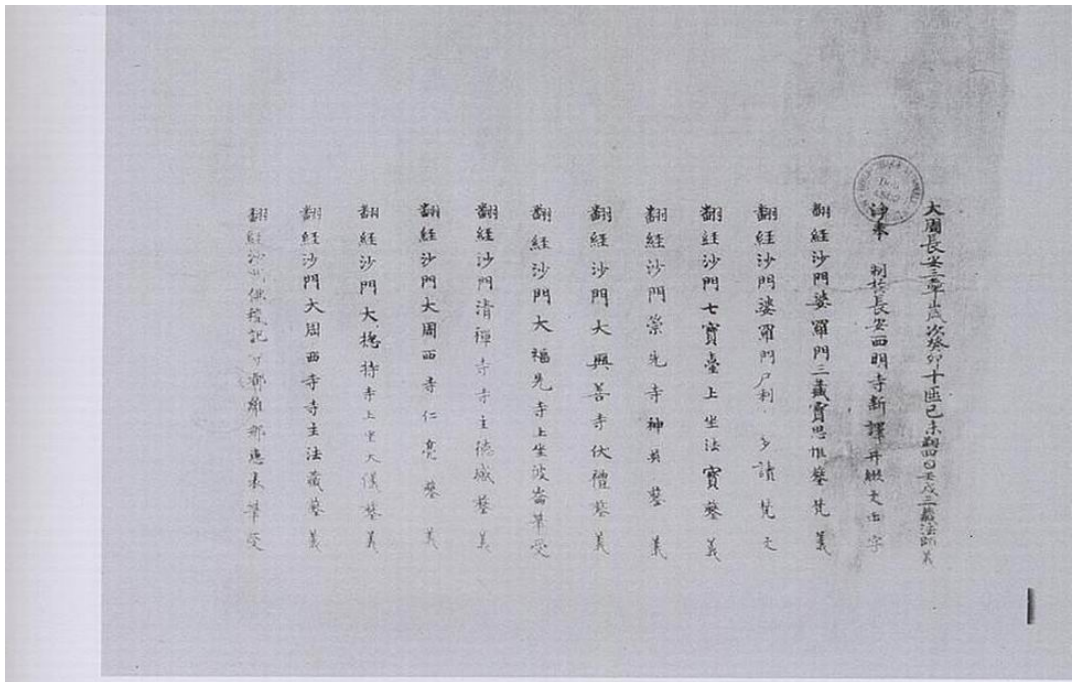 大周長安三年歲次癸卯十匝己未朔四日壬戌三藏法師義
淨奉 制於長安西明寺新譯并綴文出字
翻經沙門婆羅門三藏寶思惟證梵義
翻經沙門婆羅門尸利 多讀梵文
翻經沙門七寶臺上坐法寶證義
翻經沙門崇先寺神英證義
翻經沙門大興善寺伏禮證義
翻經沙門大福先寺上坐波崙筆受
翻經沙門清禪寺寺主德感證義
翻經沙門大周西寺仁亮證義
翻經沙門大揔持寺上坐大儀證義
翻經沙門大周西寺寺主法藏證義
翻經沙門佛授記寺都維那惠表筆受